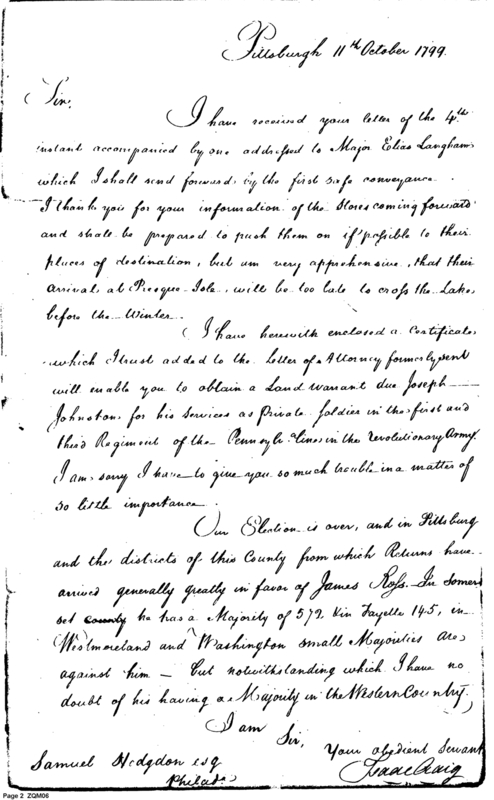 Pittsburgh 11th October 1799.
Sir,
I have received your letter of the 4th
instant accompanied by one addressed to Major Elias Langham
which I shall send forward by the first safe conveyance.
I thank you for your information of the Stores coming forward
and shall be prepared to push them on if possible to their
places of destination, but am very apprehensive, that their
arrival at Presque-Isle, will be too late to cross the Lake
before the Winter.
I have herewith enclosed a Certificate
which I trust added to the Letter of Attorney formerly sent
will enable you to obtain a Land Warant due Joseph
Johnston for his Services as Private Soldier in the first and
third Regiment of the Pennsyla. Line in the Revolutionary Army.
I am sorry I have to give you so much trouble in a matter of
so little importance.
Our Election is over, and in Pittsburg
and the districts of this County from which Returns have
arrived generally greatly in favor of James Ross. In Somer
set county he has a Majority of 572 & in Fayette 145, in
Westmoreland and Washington small Majorities are
against him — but notwithstanding which I have no
doubt of his having a Majority in the Western Country.
I am
Sir,
Your obedient Servant
Isaac Craig
Samuel Hodgdon esq
Philada.
Page 2 ZQM06